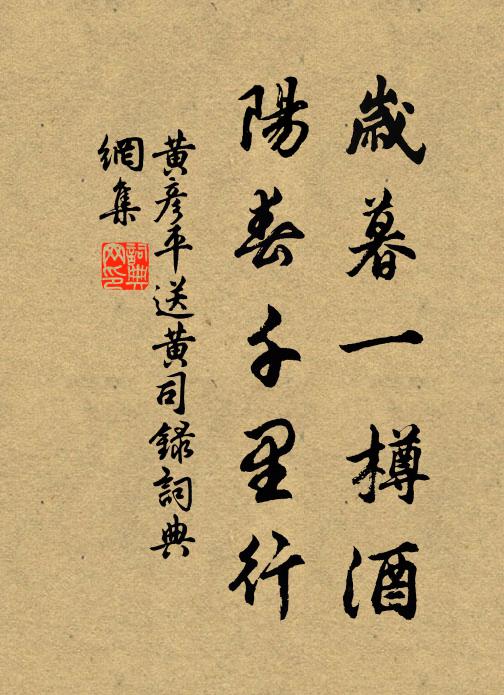 歲暮一樽酒
陽春千里行
黃彥平送黃司録詞典
網集
詞典
网印